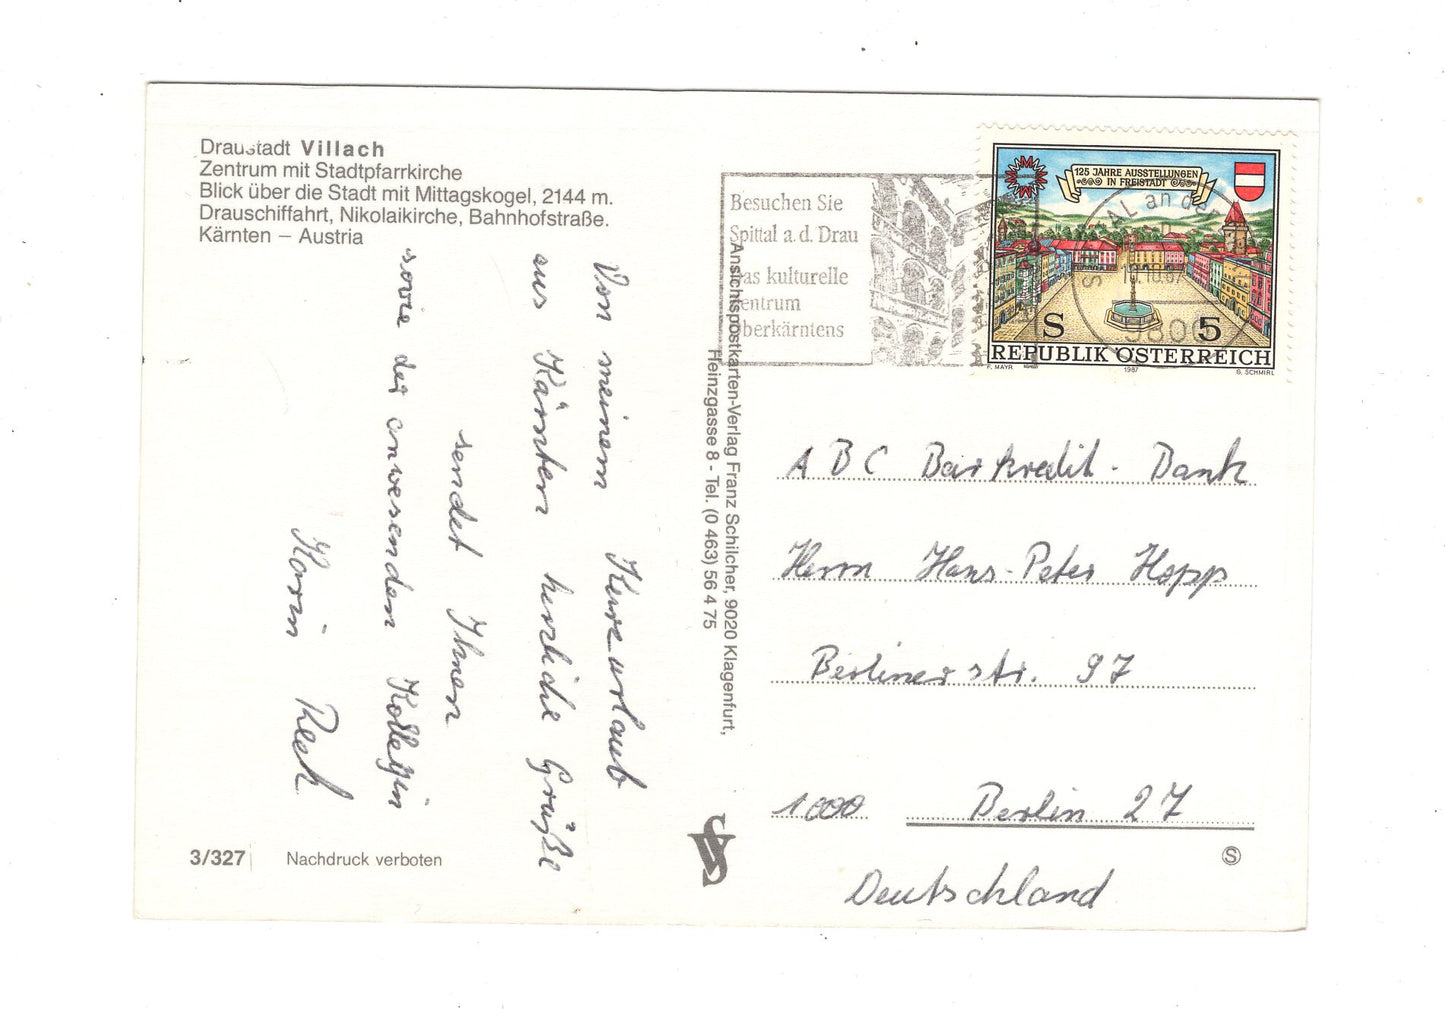 Draustadt Villach
Zentrum mit Stadtpfarrkirche
Blick über die Stadt mit Mittagskogel, 2144 m.
Drauschiffahrt, Nikolaikirche, Bahnhofstraße.
Kärnten – Austria
Von meinem Kurzurlaub
aus Kärnten herzliche Grüße
sendet Ihnen
sowie der anwesenden Kollegin
Karin
3/327
Nachdruck verboten
Ansichtspostkarten-Verlag Franz Schilcher, 9020 Klagenfurt,
Heinzgasse 8 - Tel. (0 463) 56 4 75
Besuchen Sie
Spittal a. d. Drau
das kulturelle
Zentrum
Oberkärntens
125 JAHRE AUSSTELLUNGEN
IN FREISTADT
S 5
REPUBLIK ÖSTERREICH
F. MAYR 1987 G. SCHMIRL
AL an der
10.87
9800
ABC Barkredit-Bank
Herrn Hans-Peter Hopp
Berlinerstr. 97
1000 Berlin 27
Deutschland
S